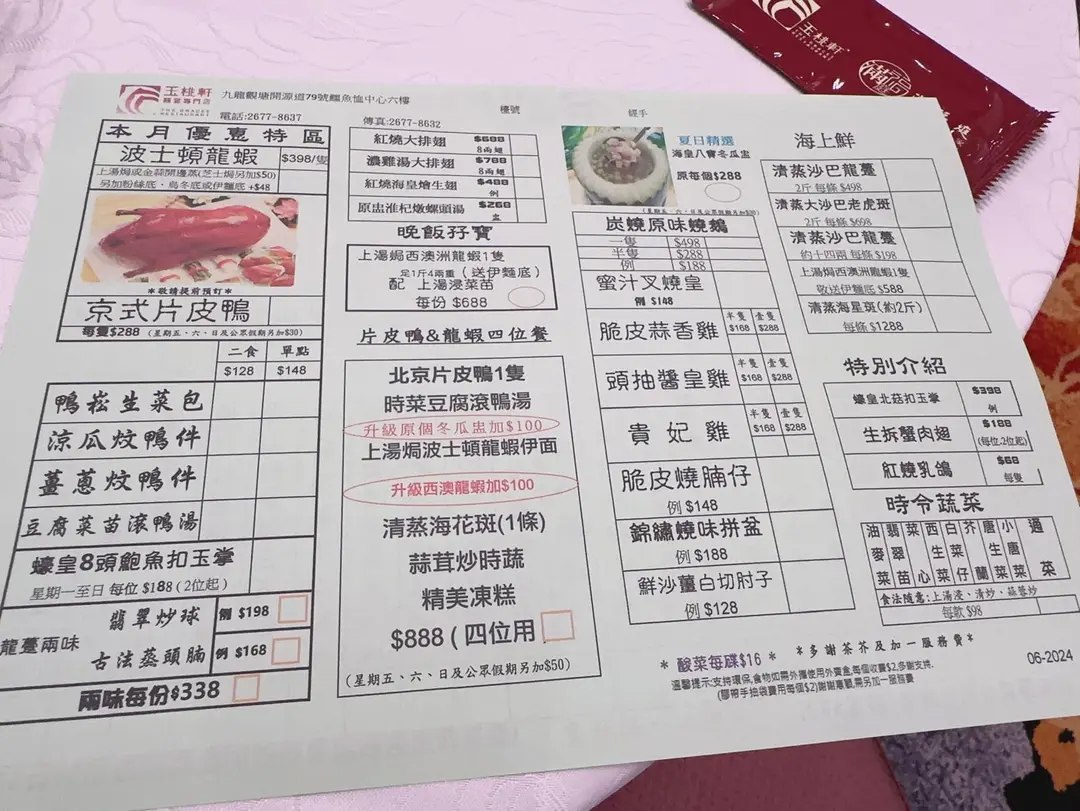 玉桃軒
囍宴專門店
九龍觀塘開源道79號鱷魚恤中心六樓
電話:2677-8637
傳真:2677-8632
檯號
經手
本月優惠特區
波士頓龍蝦 $398/隻
上湯焗或金蒜開邊蒸(芝士焗另加$50)
另加粉絲底、烏冬底或伊麵底 +$48
*敬請提前預訂*
京式片皮鴨
每隻$288 (星期五、六、日及公眾假期另加$30)
二食 單點
$128 $148
鴨崧生菜包
涼瓜炆鴨件
薑蔥炆鴨件
豆腐菜苗滾鴨湯
蠔皇8頭鮑魚扣玉掌
星期一至日 每位 $188 (2位起)
龍躉兩味
翡翠炒球 例 $198
古法蒸頭腩 例 $168
兩味每份$338
紅燒大排翅 $688
8兩翅
濃雞湯大排翅 $788
8兩翅
紅燒海皇燴生翅 $488
例
原盅淮杞燉螺頭湯 $268
盅
晚飯孖寶
上湯焗西澳洲龍蝦1隻
足1斤4兩重 (送伊麵底)
配 上湯浸菜苗
每份 $688
片皮鴨&龍蝦四位餐
北京片皮鴨1隻
時菜豆腐滾鴨湯
升級原個冬瓜盅加$100
上湯焗波士頓龍蝦伊面
升級西澳龍蝦加$100
清蒸海花斑(1條)
蒜茸炒時蔬
精美凍糕
$888 (四位用
(星期五、六、日及公眾假期另加$50)
夏日精選
海皇八寶冬瓜盅
原每個$288
(星期五、六、日及公眾假期另加$30)
炭燒原味燒鵝
一隻 $498
半隻 $288
例 $188
蜜汁叉燒皇
例 $148
脆皮蒜香雞 半隻 壹隻
$168 $288
頭抽醬皇雞 半隻 壹隻
$168 $288
貴妃雞 半隻 壹隻
$168 $288
脆皮燒腩仔
例 $148
錦繡燒味拼盆
例 $188
鮮沙薑白切肘子
例 $128
海上鮮
清蒸沙巴龍躉
2斤 每條 $498
清蒸大沙巴老虎斑
2斤 每條 $698
清蒸沙巴龍躉
約十四兩 每條 $198
上湯焗西澳洲龍蝦1隻
敬送伊麵底 $588
清蒸海星斑(約2斤)
每條 $1288
特別介紹
蠔皇北菇扣玉掌 $398
例
生拆蟹肉翅 $188
(每位,2位起)
紅燒乳鴿 $68
每隻
時令蔬菜
油麥菜
翡翠苗
菜心
西生菜
白菜仔
芥蘭
唐生菜
小唐菜
通菜
食法隨意:上湯浸、清炒、蒜蓉炒
每款 $98
* 酸菜每碟$16 *
*多謝茶芥及加一服務費*
溫馨提示:支持環保,食物如需外攜使用外賣盒,每個收費$2,多謝支持.
(膠帶手抽袋費用每個$2)謝謝惠顧,需另加一服務費
06-2024
玉桃軒